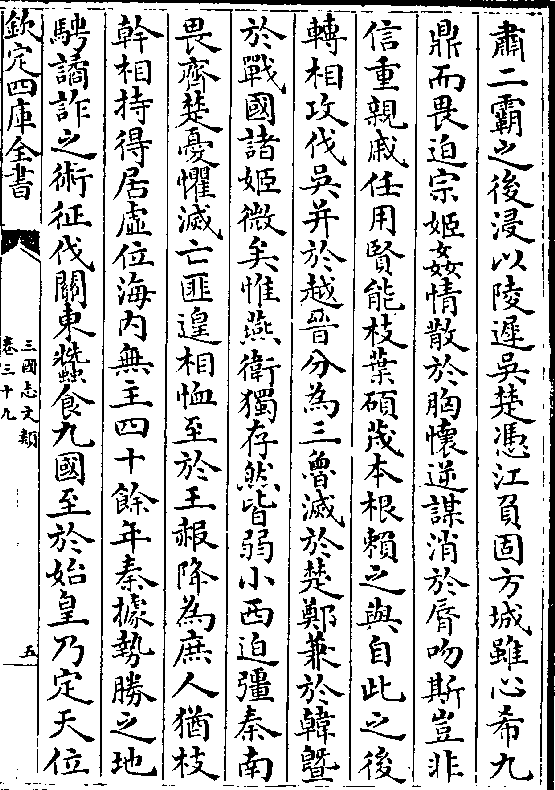 肅二霸之後浸以陵遲吳楚馮江負固方城雖心希九
鼎而畏迫宗姬姦情散於胸懷逆謀消於脣吻斯豈非
信重親戚任用賢能枝葉碩茂本根賴之與自此之後
轉相攻伐吳并於越晉分為三魯滅於楚鄭兼於韓暨
於戰國諸姬微矣惟燕衛獨存然皆弱小西迫彊秦南
畏齊楚憂懼滅亡匪遑相恤至於王赧降為庶人猶枝
幹相持得居虛位海內無主四十餘年秦據勢勝之地
騁譎詐之術征伐關東蠶食九國至於始皇乃定天位
欽定四庫全書
三國志文類
卷三十九
五